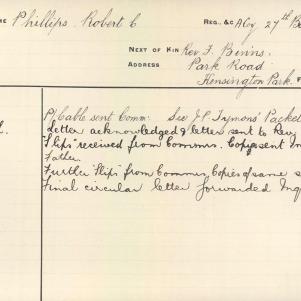 ME Phillips, Robert C REG. & C ACoy, 27th B
NEXT OF KIN Rev. F. Binns.
ADDRESS Park Road
Kensington Park.
P/Cable sent Comm: See J.P. Tymons' Packet
Letter acknowledged & letter sent to Rev
"Slips" received from Commrs. Copy sent In
Father.
Further "Slips" from Commrs, Copies of same s
Final circular letter forwarded Inq